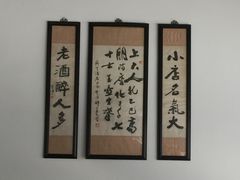 小店名氣大
上大人孔乙己高
朋满座化三千七
十士玉壺生春
老酒醉人多